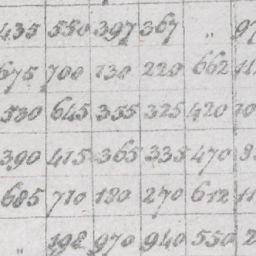 435 550 397 367 "
675 700 130 220 662
530 645 355 325 420
390 415 365 335 470
685 710 180 270 612
" 198 970 940 550